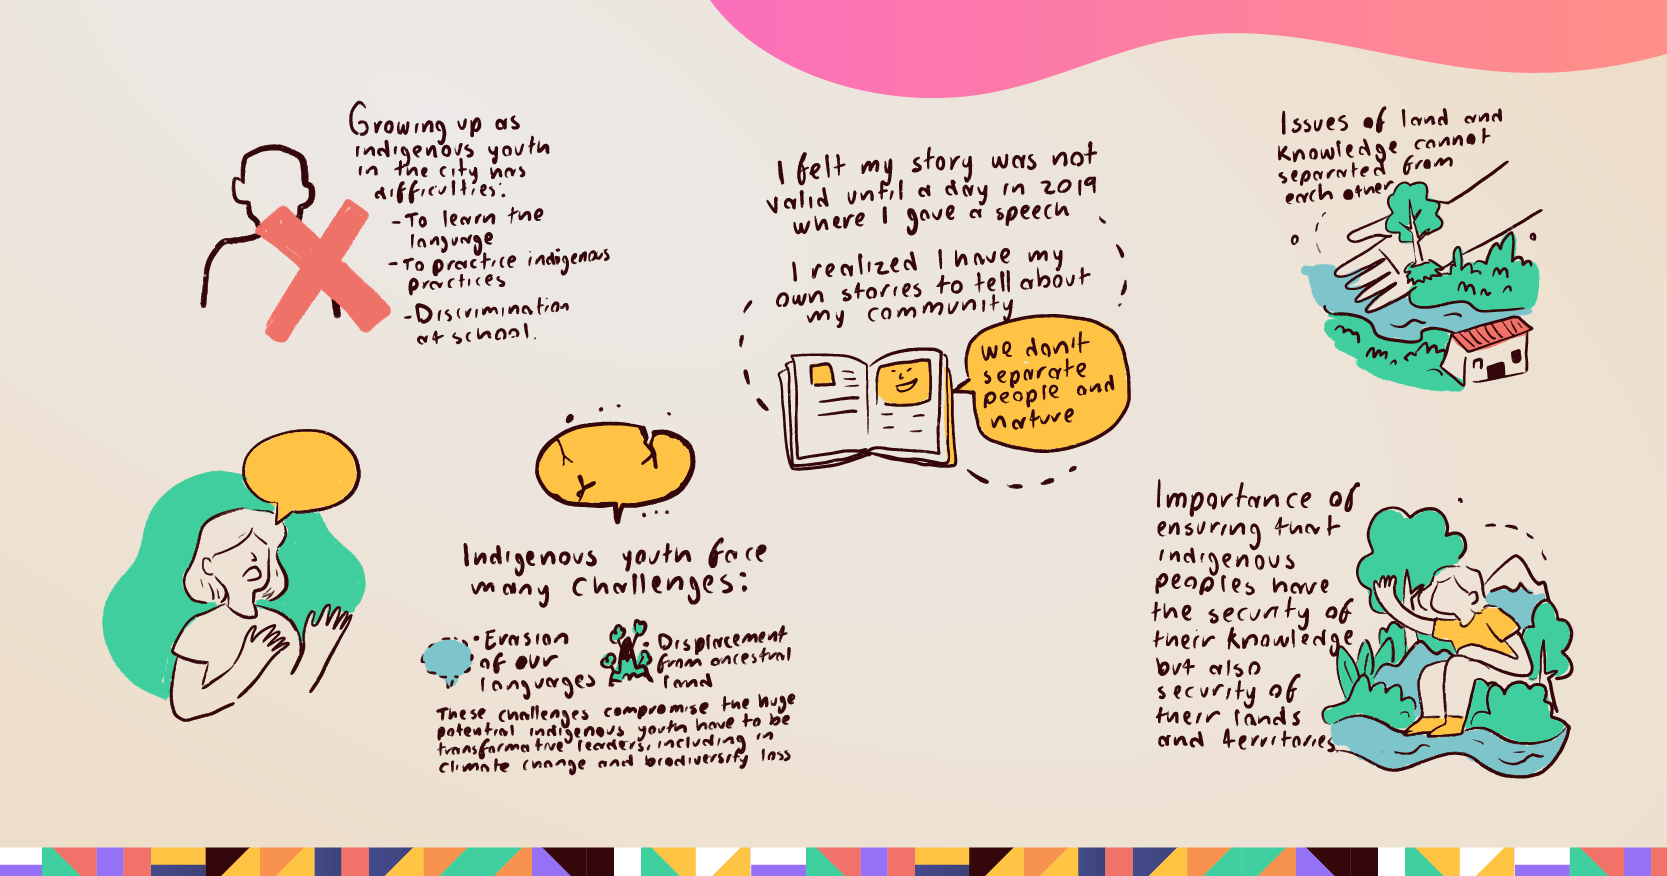 Growing up as
indigenous youth
in the city has
difficulties:
-To learn the
language
-To practice indigenous
practices
-Discrimination
at school.
Indigenous youth face
many challenges:
•Erasion
of our
languages
•Displacement
from ancestral
land
These challenges compromise the huge
potential indigenous youth have to be
transformative leaders, including in
climate change and biodiversity loss
I felt my story was not
valid until a day in 2019
where I gave a speech
I realized I have my
own stories to tell about
my community
we don't
separate
people and
nature
Issues of land and
Knowledge cannot
separated from
each other
Importance of
ensuring that
indigenous
peoples have
the security of
their knowledge
but also
security of
their lands
and territories